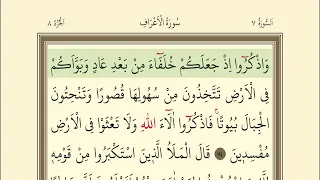 السُّورَةُ ٧ سُورَةُ الْأَعْرَافِ الجُزْءُ ٨
وَاذْكُرُوا إِذْ جَعَلَكُمْ خُلَفَاءَ مِنْ بَعْدِ عَادٍ وَبَوَّأَكُمْ
فِي الْأَرْضِ تَتَّخِذُونَ مِنْ سُهُولِهَا قُصُورًا وَتَنْحِتُونَ
الْجِبَالَ بُيُوتًا فَاذْكُرُوا آلَاءَ اللَّهِ وَلَا تَعْثَوْا فِي الْأَرْضِ
مُفْسِدِينَ ٧٤ قَالَ الْمَلَأُ الَّذِينَ اسْتَكْبَرُوا مِنْ قَوْمِهِ